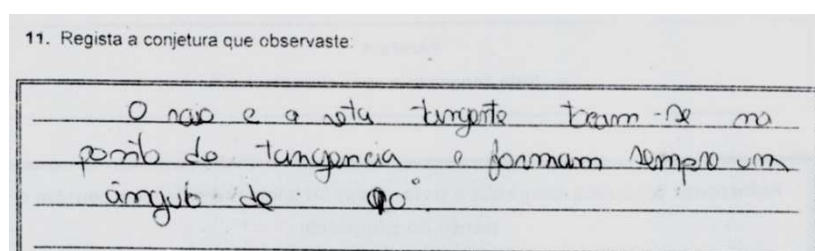 11. Regista a conjetura que observaste:
O raio e a reta tangente tocam-se no
ponto de tangencia e formam sempre um
ângulo de 90°.